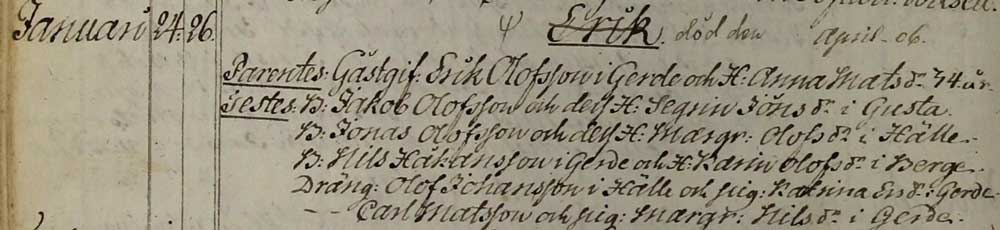 Januari 24. 26. Ψ Erik. död den April. 06.
Parentes: Gästgif: Erik Olofsson i Gerde och H: Anna Mats dr. 34. år
Testes: B: Jakob Olofsson och dess H: Segrin Jöns dr. i Gusta.
B: Jonas Olofsson och dess H: Margr: Olofs dr. i Hälle.
B: Nils Håkansson i Gerde och H: Karin Olofs dr. i Berge.
Dräng: Olof Johansson i Hälle och pig: Katrina Ers dr. i Gerde
-- Carl Matsson och pig: Margr: Nils dr. i Gerde.